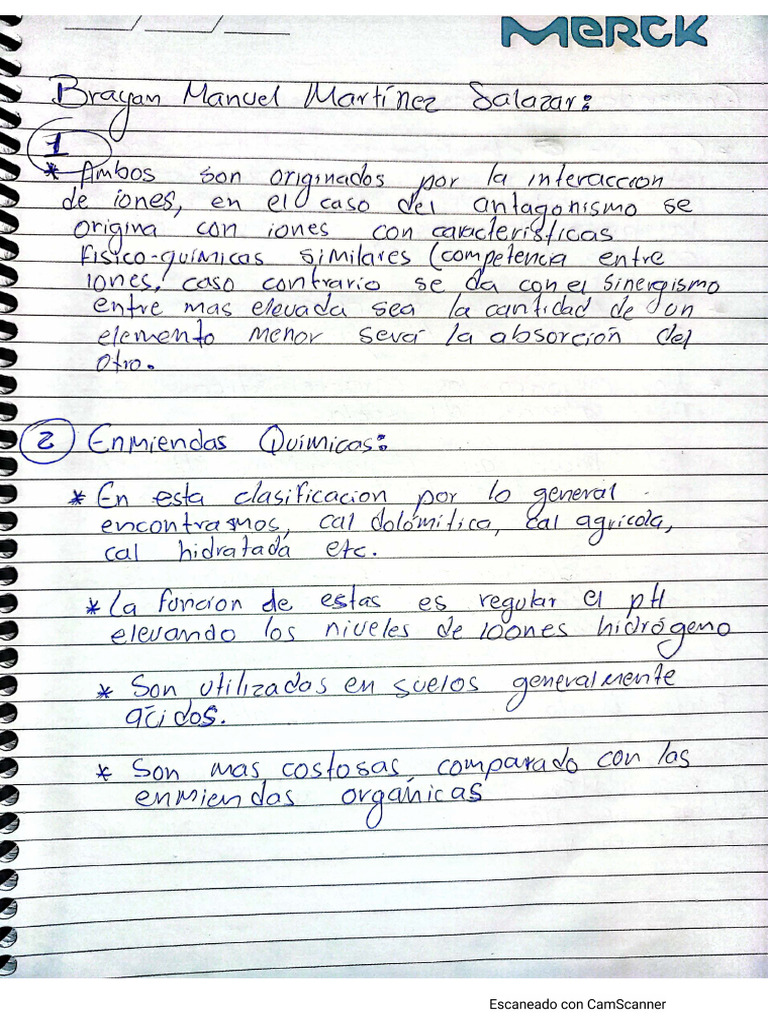 Merck
Brayan Manuel Martínez Salazar:
1
* Ambos son originados por la interaccion
de iones, en el caso del antagonismo se
origina con iones con caracteristicas
fisico-químicas similares (competencia entre
iones, caso contrario se da con el sinergismo
entre mas elevada sea la cantidad de un
elemento menor será la absorción del
otro.
2 Enmiendas Químicas:
* En esta clasificacion por lo general
encontrasmos, cal dolómitica, cal agricola,
cal hidratada etc.
* La funcion de estas es regular el pH
elevando los niveles de ioones hidrógeno
* Son utilizados en suelos generalmente
ácidos.
* Son mas costosas comparado con las
enmiendas orgánicas
Escaneado con CamScanner